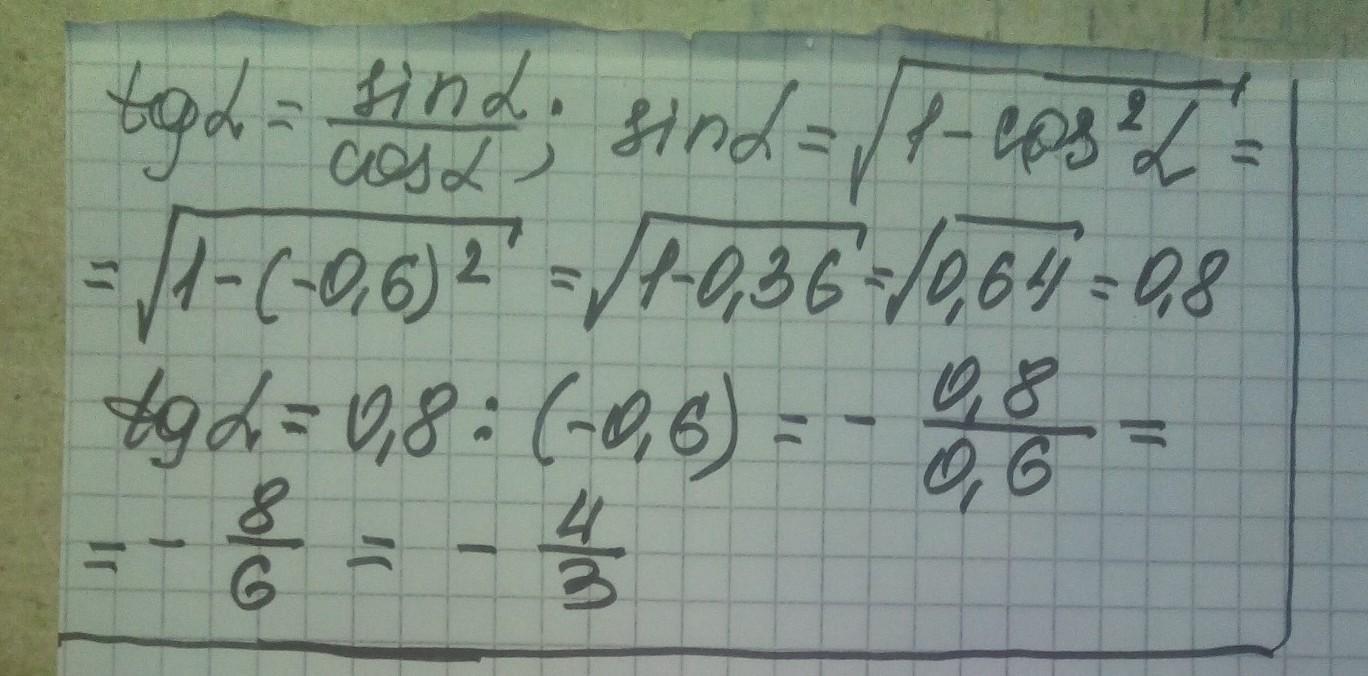 tgα = sinα/cosα; sinα = √(1 - cos²α) =
= √(1-(-0,6)²) = √(1-0,36) = √0,64 = 0,8
tgα = 0,8 : (-0,6) = - 0,8/0,6 =
= - 8/6 = - 4/3